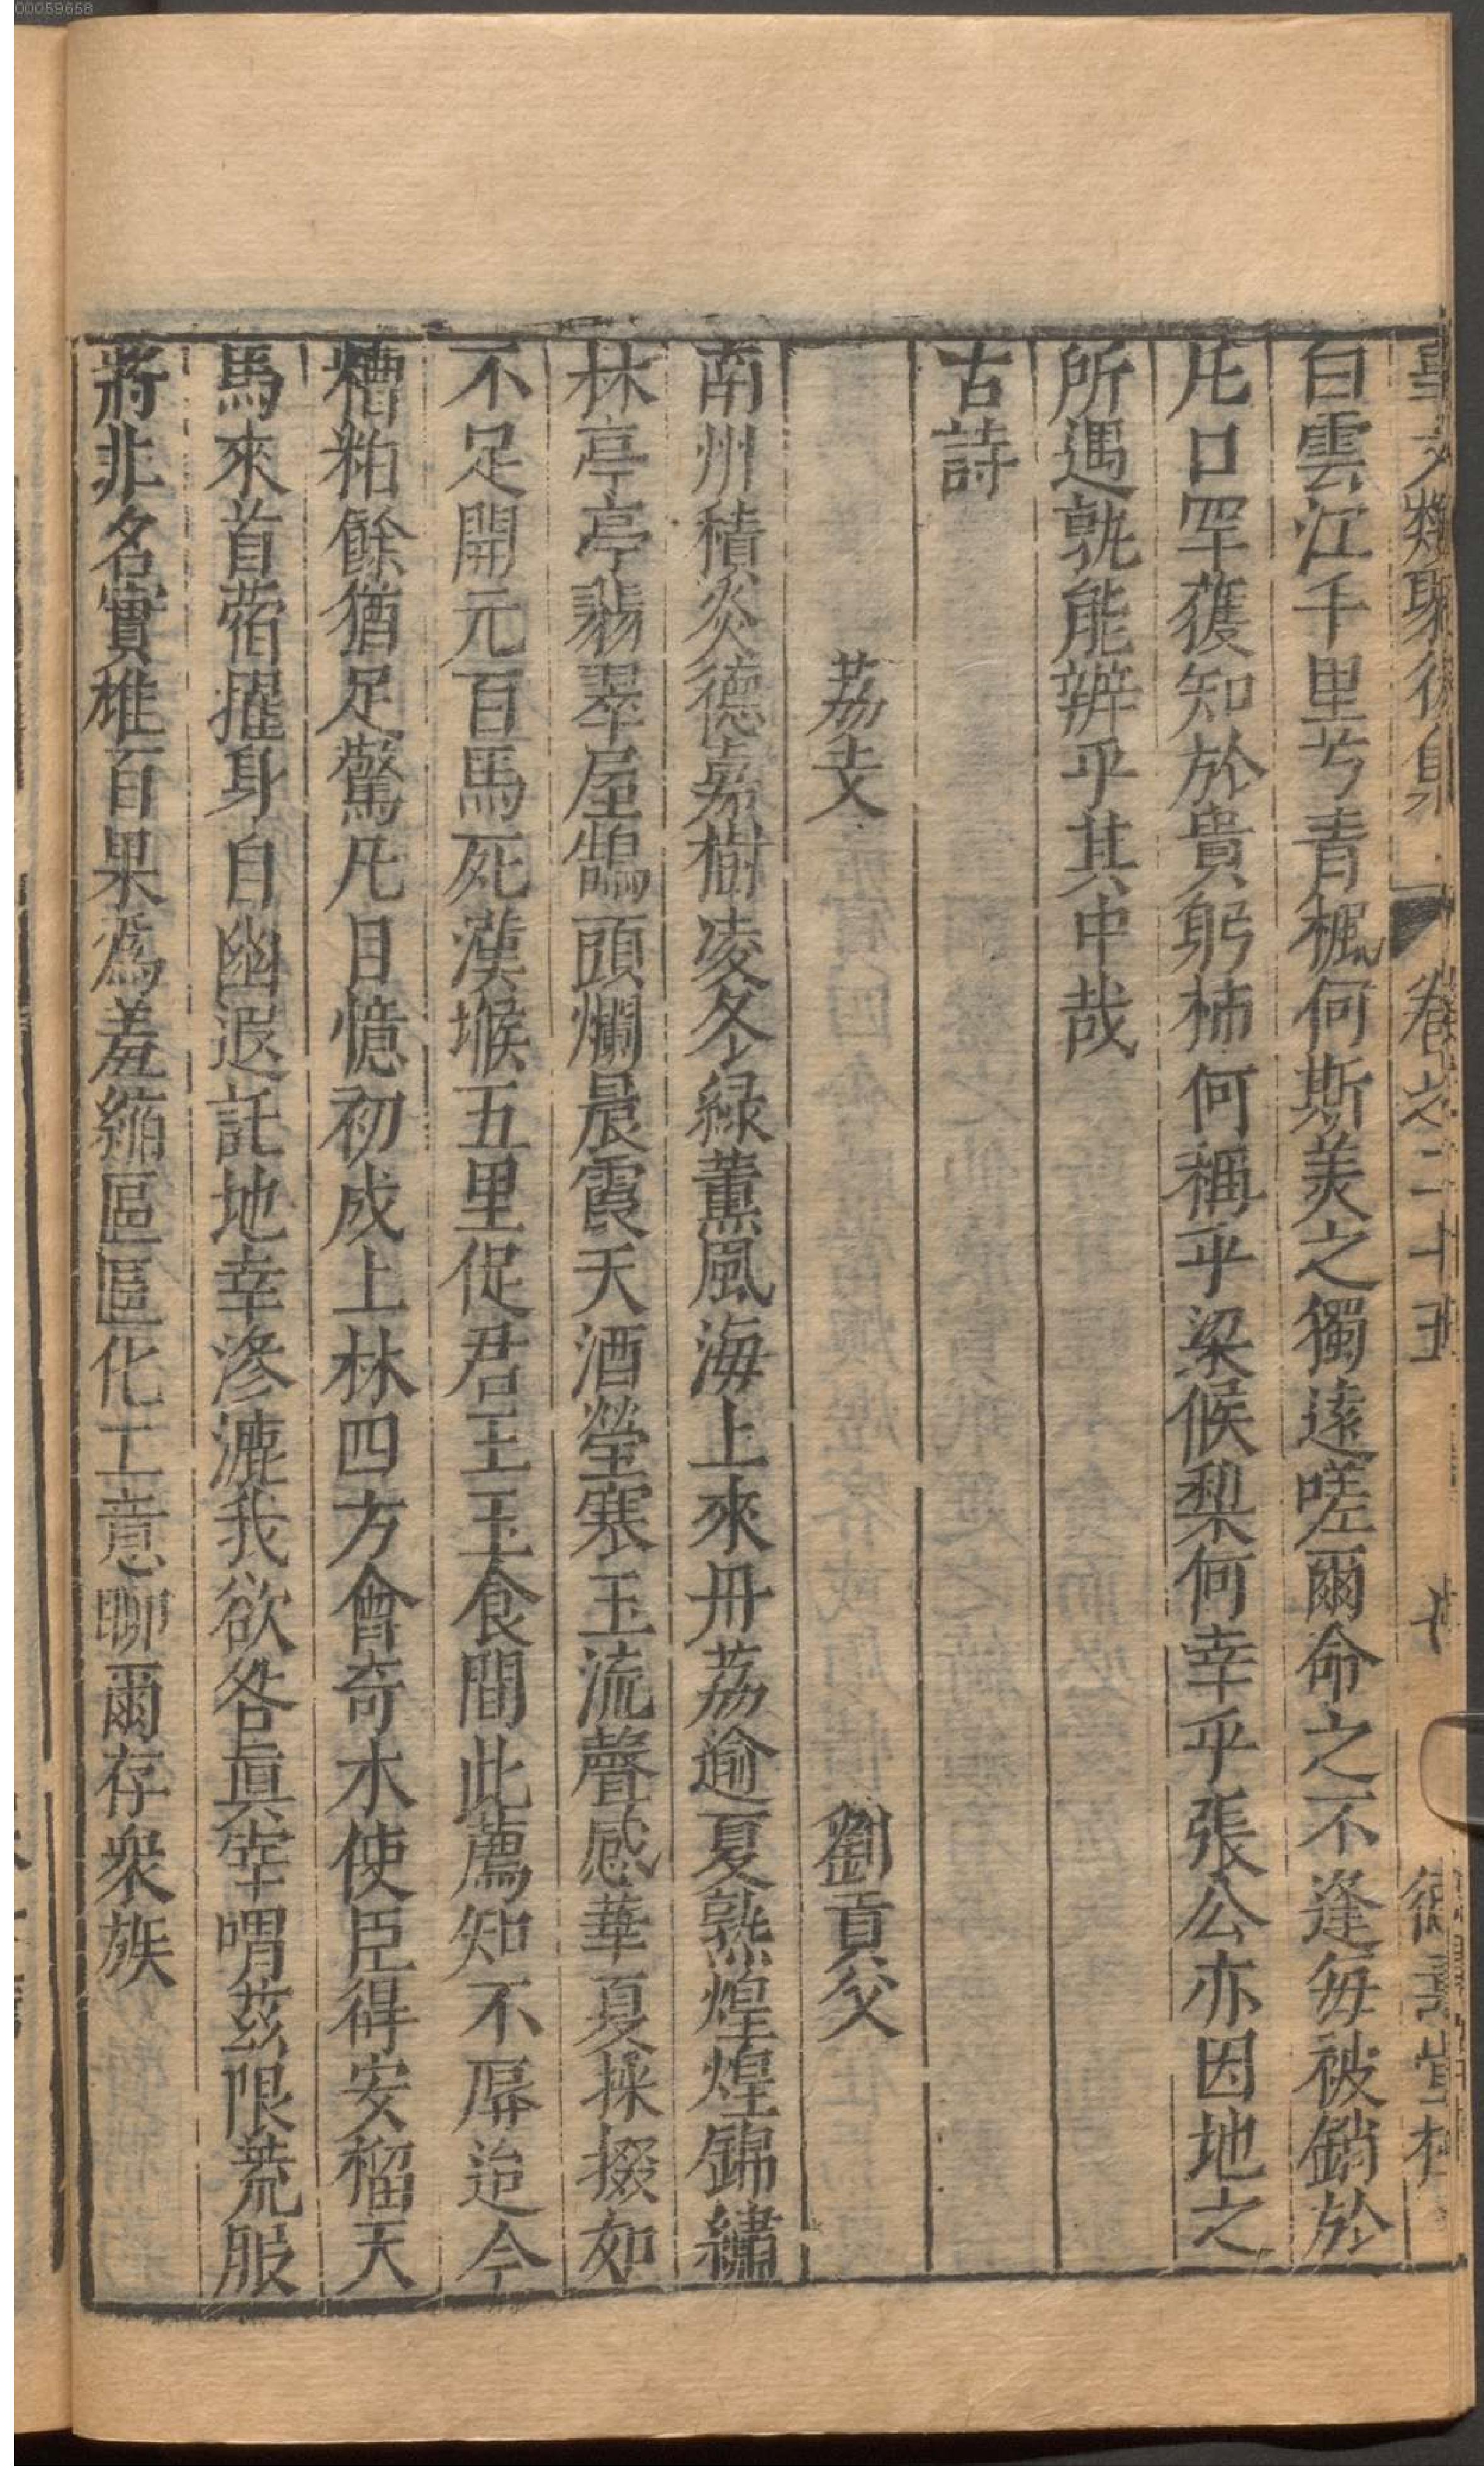 00059658
事文類聚後集 卷之二十五 德壽堂梓
白雲江千里兮青楓何斯美之獨遠嗟爾命之不逢每被銷於
凡口罕獲知於貴躬柿何稱乎梁侯梨何幸乎張公亦因地之
所遇孰能辨乎其中哉
古詩
荔支 劉貢父
南州積炎德嘉樹凌冬綠薰風海上來丹荔逾夏熟煌煌錦繡
林亭亭翡翠屋鶉頭爛晨霞天酒瑩寒玉流聲感華夏採掇如
不足開元百馬死漢堠五里促君王玉食間此薦知不辱迨今
糟粕餘猶足驚凡目憶初成上林四方會奇木使臣得安榴天
馬來首蓿擢身自幽遐託地幸滲漉我欲咎真宰喟茲限荒服
將非名實雄百果為羞縮區區化工意聊爾存衆族